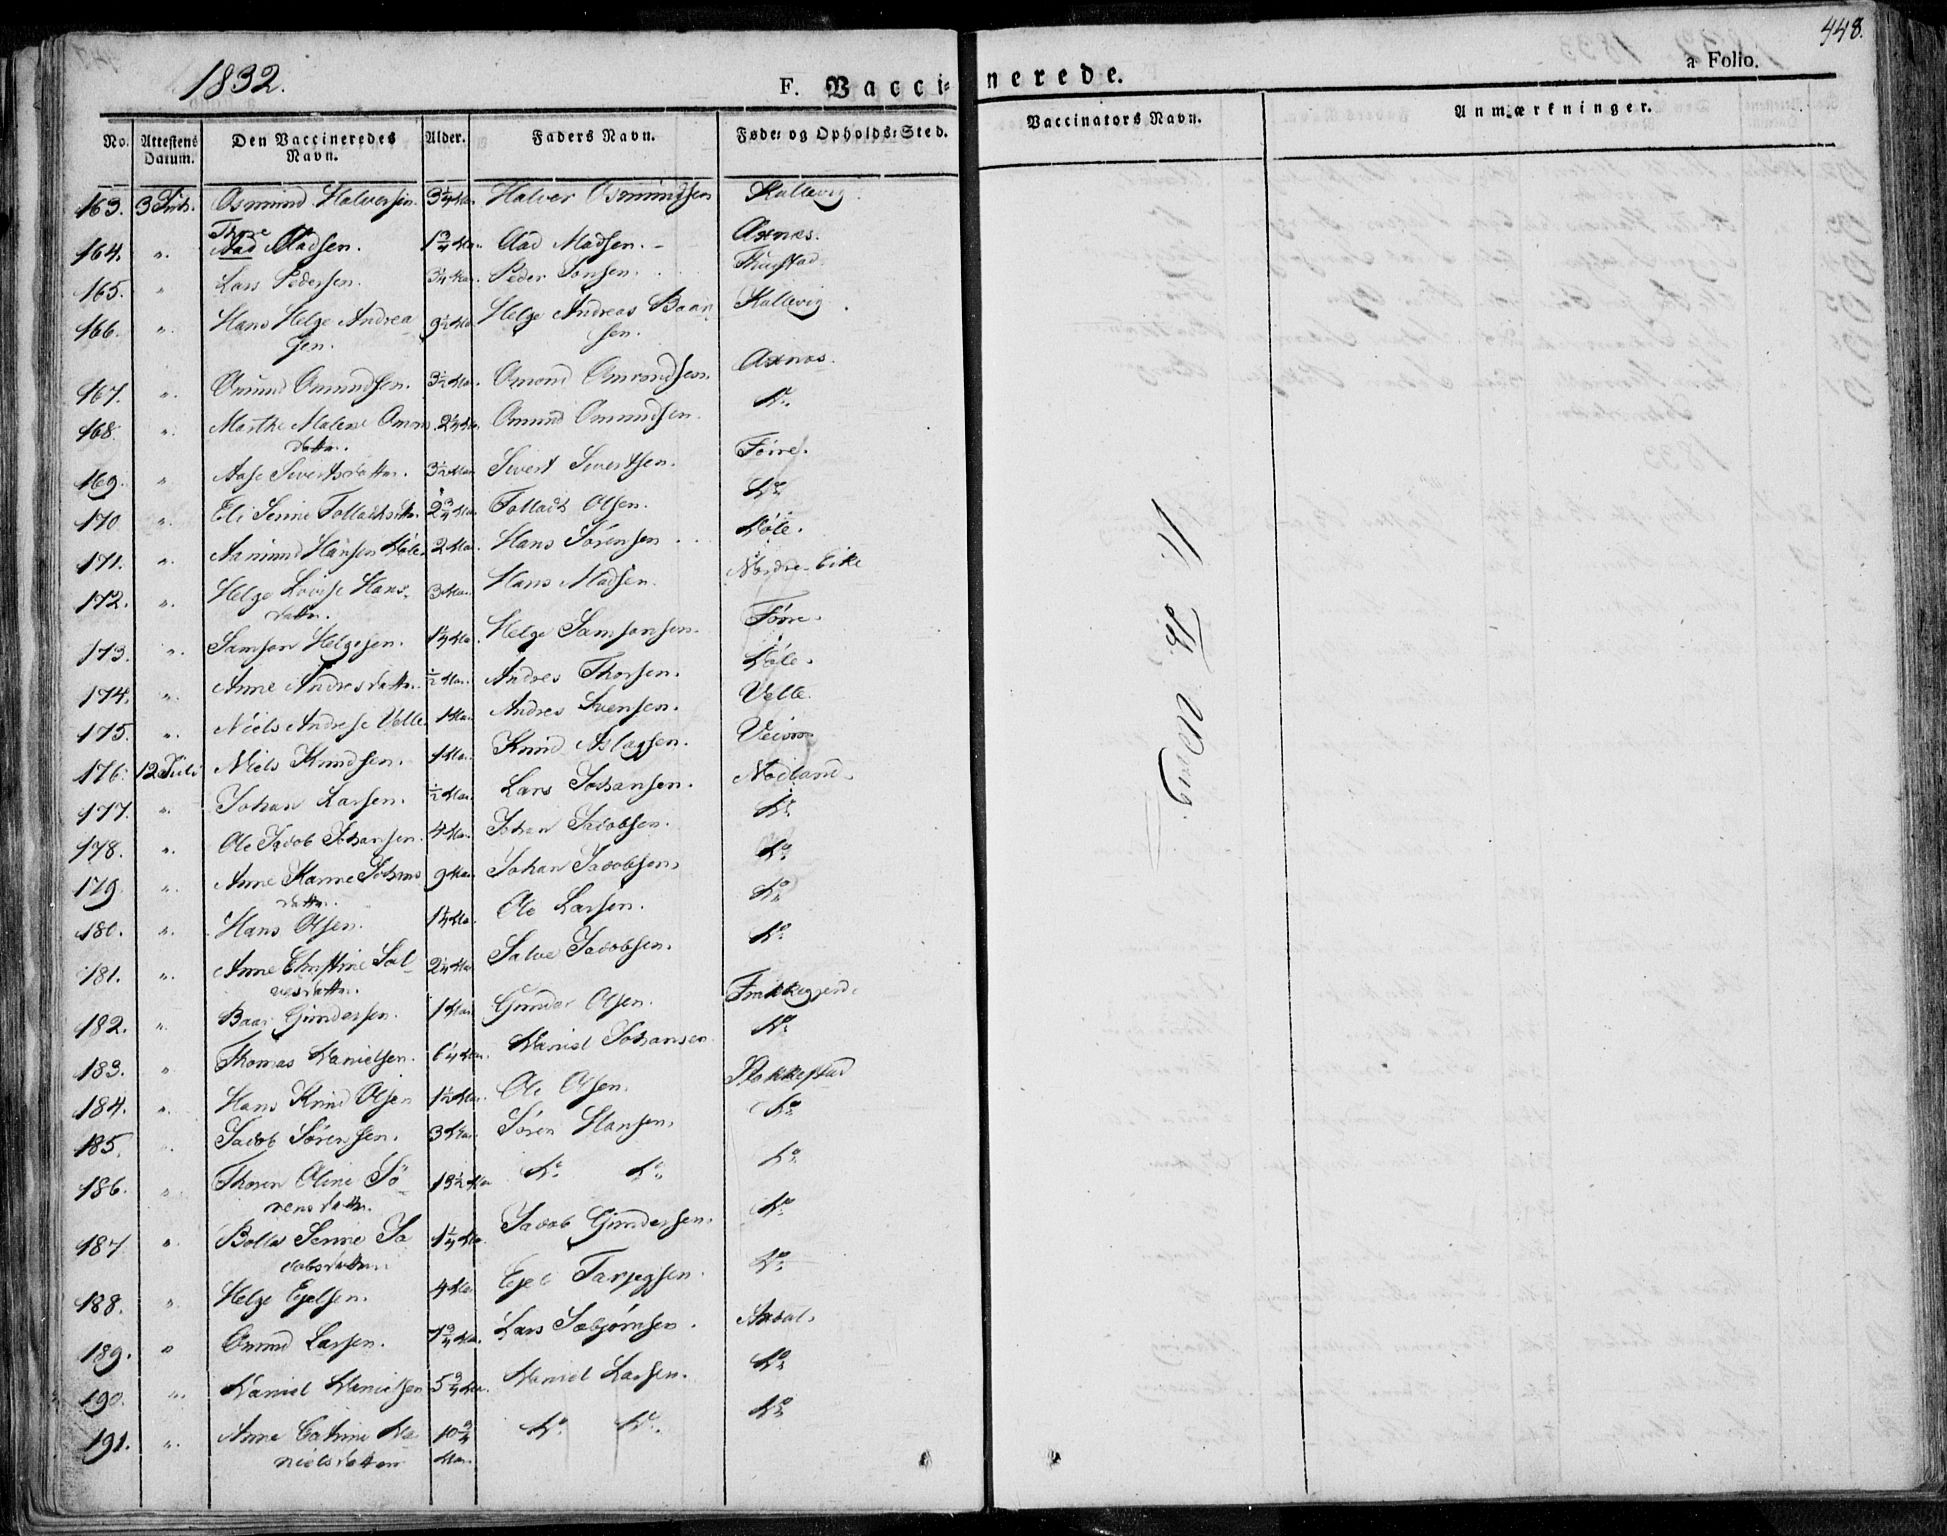 448.
1832.
F. Vaccinerede.
a Folio.
No.
Attestens Datum.
Den Vaccineredes Navn.
Alder.
Faders Navn.
Føde- og Opholds-Sted.
Vaccinators Navn.
Anmærkninger.
163. 3 Juli. Osmund Halversen. 3 1/4 Aar. Halver Osmundsen Kallevig
Thore
164. „ Aad Madsen. 1 3/4 Aar. Aad Madsen. Axnæs.
165. „ Lars Pedersen. 3/4 Aar. Peder Jonsen.
166. „ Hans Helge Andrea- 9 1/2 Aar Helge Andreas Baar- Kallevig
sen. sen.
167. „ Omund Omundsen. 3 1/2 Aar. Omond Omondsen. Axnæs.
168. „ Marthe Malene Omun 2 1/4 Aar. Omund Omundsen. Do
datter.
169. „ Aase Sivertsdatter. 3 1/2 Aar Sivert Sivertsen. Førre.
170 „ Eli Serine Tollachsdtr. 2 3/4 Aar Tollach Olsen. Do
171. „ Aamund Hansen Døle 2 Aar. Hans Sørensen Døle.
172. „ Helge Lovise Hans- 3 Aar. Hans Madsen. Nordre-Eike
datter.
173. „ Samson Helgesen. 1 1/4 Aar. Helge Samsonsen. Førre.
174. „ Anne Andresdatter. 1/2 Aar. Andres Thorsen. Døle.
175. „ Niels Andrese Velle 1 Aar. Andres Svensen. Velle.
176. 12 Juli Niels Knudsen. 1 Aar. Knud Aslagsen.
177. „ Johan Larsen. 1/2 Aar. Lars Johansen. Mødland.
178. „ Ole Jacob Johansen. 4 Aar. Johan Jacobsen. Do
179 „ Anne Karine Johans 9 Aar. Johan Jacobsen. Do
datter.
180. „ Hans Olsen. 1 1/4 Aar. Ole Larsen. Do
181. „ Anne Christine Sal- 2 1/4 Aar Salve Jacobsen. Do
vesdatter.
182. „ Baar Gundersen. 1 Aar. Gunder Olsen.
183. „ Thomas Danielsen. 6 1/4 Aar. Daniel Johansen Do
184. „ Hans Knud Olsen 1 1/2 Aar. Ole Olsen. Stokkestad
185. „ Jacob Sørensen. 3 Aar. Søren Hansen. Do
186. „ Thoren Oline Sø- 13 1/2 Aar Do Do Do
rensdatter.
187 „ Bolla Serine Ja 1 1/4 Aar. Jacob Gundersen. Do
cobsdatter.
188. „ Helge Egelsen. 4 Aar. Egel Tarjegsen. Do
189. „ Omund Larsen. 7 3/4 Aar. Lars Asbjørnsen. Ardal.
190. „ Daniel Danielsen 5 3/4 Aar. Daniel Larsen. Do
191. „ Anne Catrine Da- 10 3/4 Do Do Do
nielsdatter Aar.